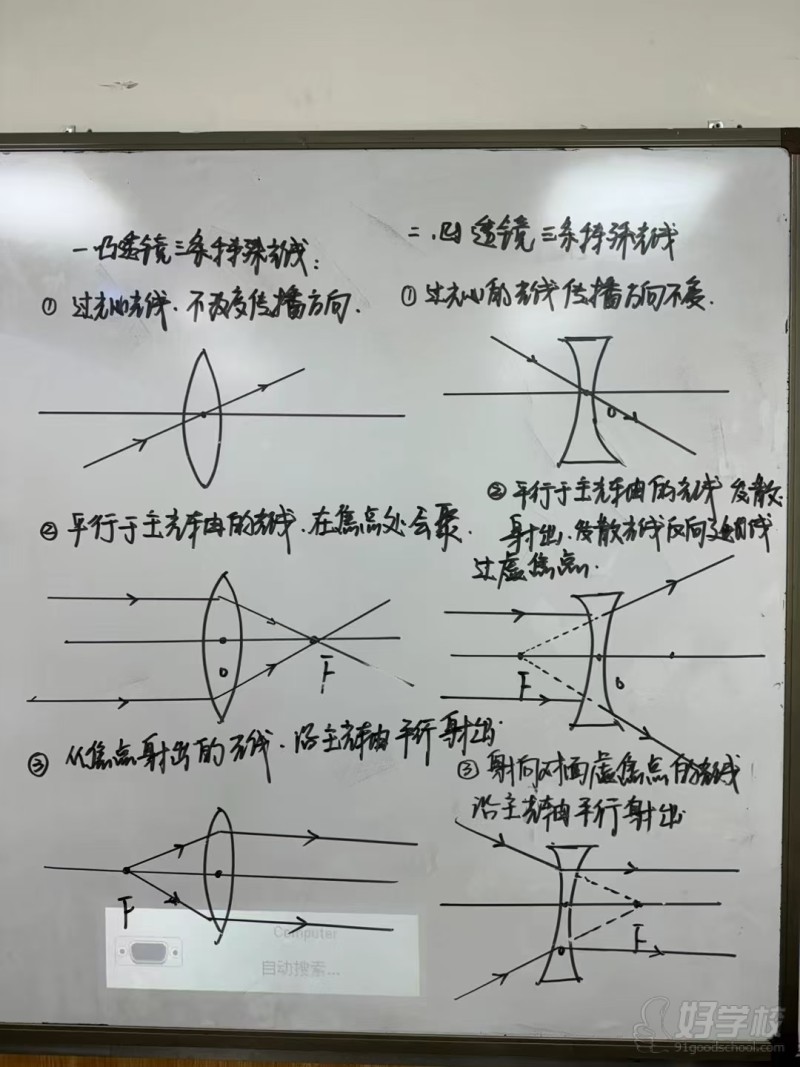 一凸透镜三条特殊光线:
① 过光心光线.不改变传播方向.
② 平行于主光轴的光线.在焦点处会聚.
O
F
③ 从焦点射出的光线.沿主光轴平行射出
F
二.凹透镜三条特殊光线
① 过光心的光线传播方向不变.
O
② 平行于主光轴的光线发散
射出.发散光线反向延长线
过虚焦点.
F
O
③ 射向对面虚焦点的光线
沿主光轴平行射出
O
F
Computer
自动搜索...
好学校
91goodschool.com